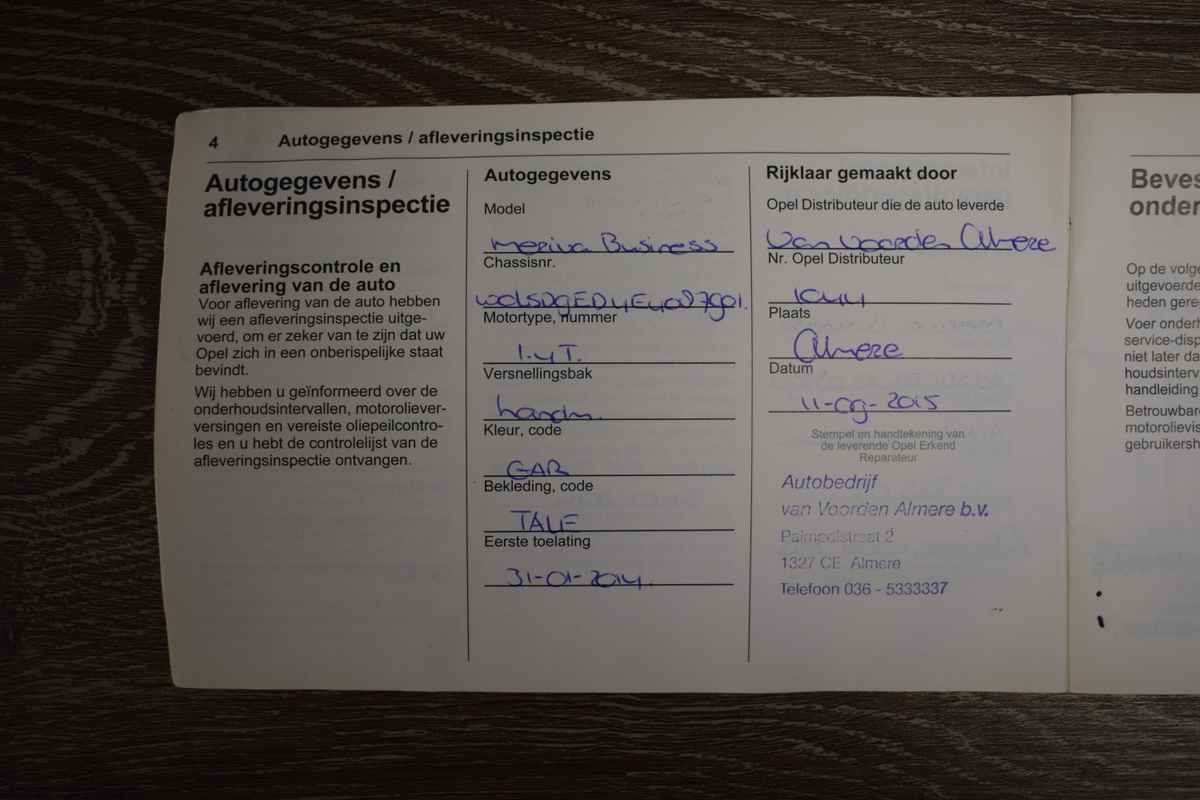 4 Autogegevens / afleveringsinspectie
Autogegevens /
afleveringsinspectie
Afleveringscontrole en
aflevering van de auto
Voor aflevering van de auto hebben
wij een afleveringsinspectie uitge-
voerd, om er zeker van te zijn dat uw
Opel zich in een onberispelijke staat
bevindt.
Wij hebben u geïnformeerd over de
onderhoudsintervallen, motoroliever-
versingen en vereiste oliepeilcontro-
les en u hebt de controlelijst van de
afleveringsinspectie ontvangen.
Autogegevens
Model
Meriva Business
Chassisnr.
Motortype, nummer
1.4T.
Versnellingsbak
handm.
Kleur, code
GAR
Bekleding, code
Eerste toelating
31-01-2014.
Rijklaar gemaakt door
Opel Distributeur die de auto leverde
Van Voorden Almere
Nr. Opel Distributeur
Plaats
Almere
Datum
11-09-2015
Stempel en handtekening van
de leverende Opel Erkend
Reparateur
Autobedrijf
van Voorden Almere b.v.
Palmpolstraat 2
1327 CE Almere
Telefoon 036 - 5333337
Beves
onder
Op de volge
uitgevoerde
heden gere
Voer onderh
service-disp
niet later da
houdsinterv
handleiding
Betrouwbar
motorolievis
gebruikersh